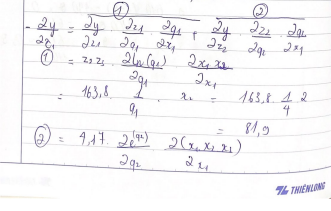 ① ②
- ∂y/∂x₁ = ∂y/∂z₁ · ∂z₁/∂g₁ · ∂g₁/∂x₁ + ∂y/∂z₂ · ∂z₂/∂g₂ · ∂g₂/∂x₁
① = z₂z₁ · ∂ln(g₁)/∂g₁ · ∂x₁x₂/∂x₁
= 163,8 · 1/g₁ · x₂ = 163,8 · 1/4 · 2
= 81,9
② = 4,17 · ∂e^(g₂)/∂g₂ · ∂(x₁ x₂ x₃)/∂x₁
THIÊN LONG